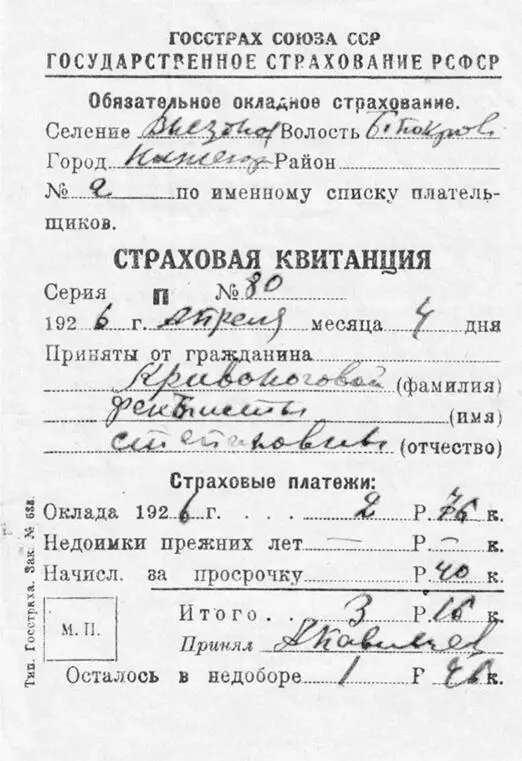 ГОССТРАХ СОЮЗА ССР
ГОСУДАРСТВЕННОЕ СТРАХОВАНИЕ РСФСР
Обязательное окладное страхование.
Селение Волость
Город Район
№ 2 по именному списку платель-
щиков.
СТРАХОВАЯ КВИТАНЦИЯ
Серия П № 80
1926 г. Апреля месяца 4 дня
Приняты от гражданина
Кривоноговой (фамилия)
(имя)
Степановны (отчество)
Страховые платежи:
Оклада 1926 г. 2 Р. 76 к.
Недоимки прежних лет — Р. — к.
Начисл. за просрочку Р. 40 к.
Итого 3 Р. 16 к.
М. П.
Принял
Осталось в недоборе 1 Р к.
Тип. Госстраха. Зак. № 68а.